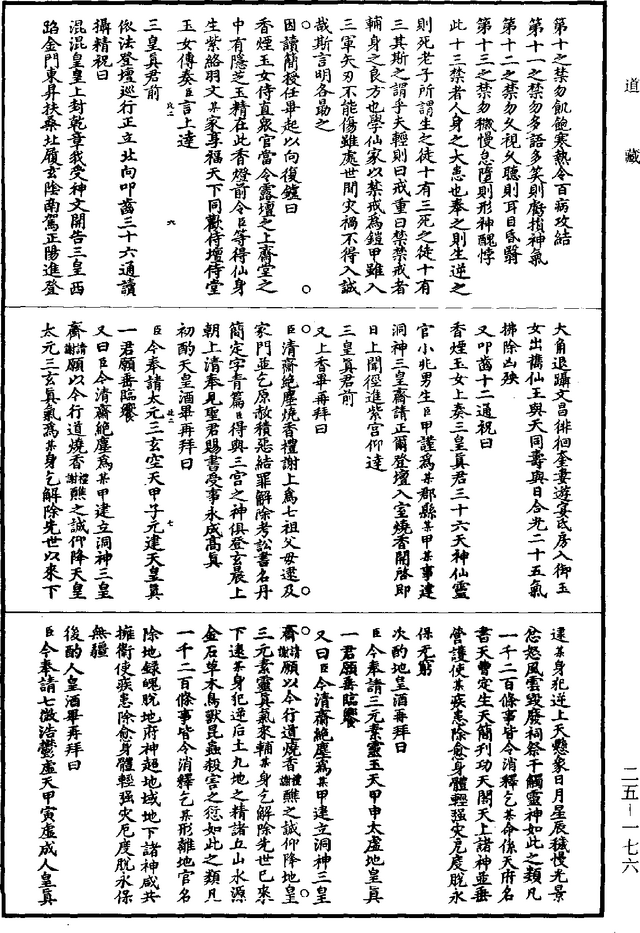 道藏
第十之禁勿飢飽寒熱令百病攻結
第十一之禁勿多語多笑則虧損神氣
第十二之禁勿久視久聽則耳目昏翳
第十三之禁勿穢慢怠隨則形神醜悖
此十三禁者人身之大患也奉之則生逆之
則死老子所謂生之徒十有三死之徒十有
三其斯之謂乎夫輕則曰戒重曰禁禁戒者
輔身之良方也學仙家以禁戒為鎧甲雖入
三軍矢刃不能傷雖處世間災禍不得入誠
哉斯言明各勗之
因讀簡授任畢起以向復鑪曰
香煙玉女侍直衆官當令露壇之上齋堂之
中有隱芝玉精在此香燈前令臣等得仙身
生紫絡羽文某家享福天下同歡侍壇侍堂
玉女傳奏臣言上達
三皇真君前
依法登壇巡行正立北向叩齒三十六通讀
攝精祝曰
混混皇皇上封乾章我受神文開告三皇西
蹈金門東昇扶桑北履玄陰南駕正陽進登
大角退躡文昌徘徊奎婁遊宴氐房入御玉
女出攜仙王與天同壽與日合光二十五氣
拂除凶殃
又叩齒十二通祝曰
香煙玉女上奏三皇真君三十六天神仙靈
官小兆男生臣甲謹為某郡縣某甲某事建
洞神三皇齋請正爾登壇入室燒香開啓即
日上聞徑進紫宮仰達
三皇真君前
又上香畢再拜曰
臣清齋絕塵燒香禮謝上為七祖父母逮及
家門並乞原赦積惡結罪解除考訟書名丹
簡定字青篇臣得與三宮之神俱登玄晨上
朝上清奉見聖君賜書受事永成高真
初酌天皇酒畢再拜曰
臣今奉請太元三玄空天甲子元建天皇真
一君願垂臨饗
又曰臣今清齋絕塵為某甲建立洞神三皇
齋請謝願以今行道燒香禮謝醮之誠仰降天皇
太元三玄真氣為某身乞解除先世以來下
逮某身犯逆上天懸象日月星辰穢慢光景
忿怒風雲毀廢祠祭干觸靈神如此之類凡
一千二百條事皆令消釋乞某命係天府名
書天曹定生天簡刊功天閣天上諸神並垂
營護使某疾患除愈身體輕强災厄度脫永
保元窮
次酌地皇酒再拜曰
臣今奉請三元素靈玉天甲申太虛地皇真
一君願垂臨饗
又曰臣今清齋絕塵為某甲建立洞神三皇
齋請謝願以今行道燒香禮謝醮之誠仰降地皇
三元素靈真氣來輔某身乞解除先世已來
下逮某身犯逆后土九地之精諸五山水源
金石草木鳥獸昆蟲殺害之愆如此之類凡
一千二百條事皆令消釋乞某形離地官名
除地錄魄脫地府神超地域地下諸神咸共
擁衛使疾患除愈身體輕强災厄度脫永保
無疆
後酌人皇酒畢再拜曰
臣今奉請七微浩鬱虛天甲寅虛成人皇真
二五—一七六